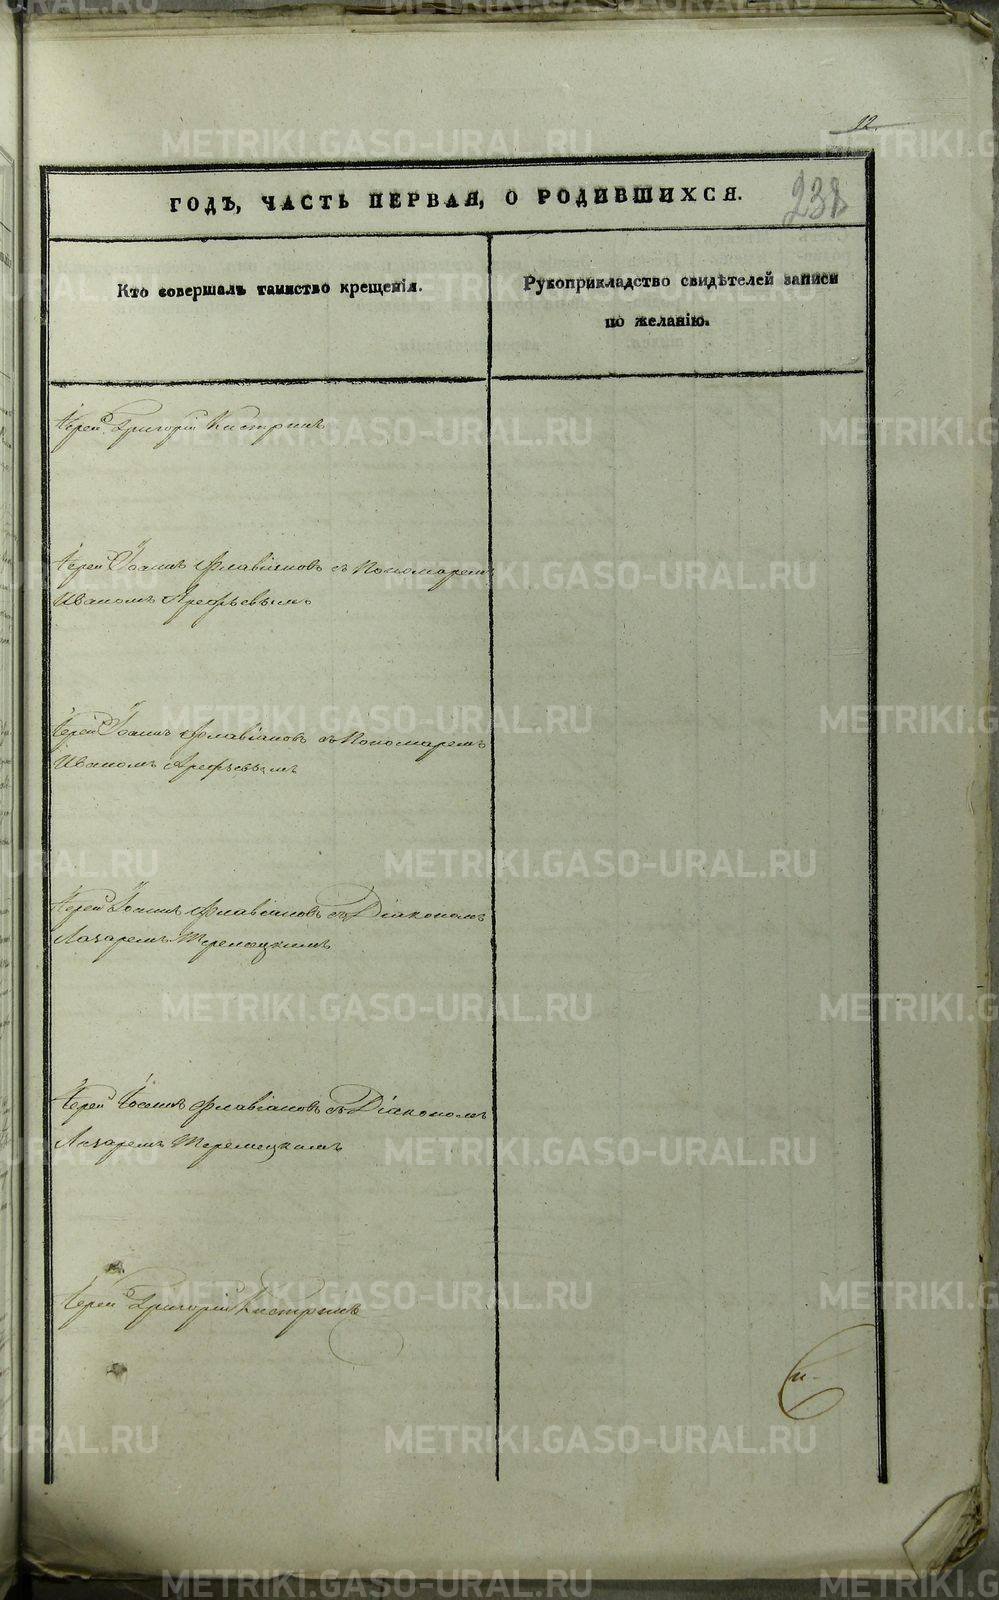 12.
238
ГОДЪ, ЧАСТЬ ПЕРВАЯ, О РОДИВШИХСЯ.
Кто совершалъ таинство крещенія.
Рукоприкладство свидѣтелей записи
по желанію.
Іерей Григорій Кистринъ
Іерей Іоаннъ Флавіановъ съ Пономаремъ
Иваномъ Арефьевымъ
Іерей Іоаннъ Флавіановъ съ Пономаремъ
Иваномъ Арефьевымъ
Іерей Іоаннъ Флавіановъ съ Діакономъ
Лазаремъ
Іерей Іоаннъ Флавіановъ съ Діакономъ
Лазаремъ
Іерей Григорій Кистринъ
METRIKI.GASO-URAL.RU